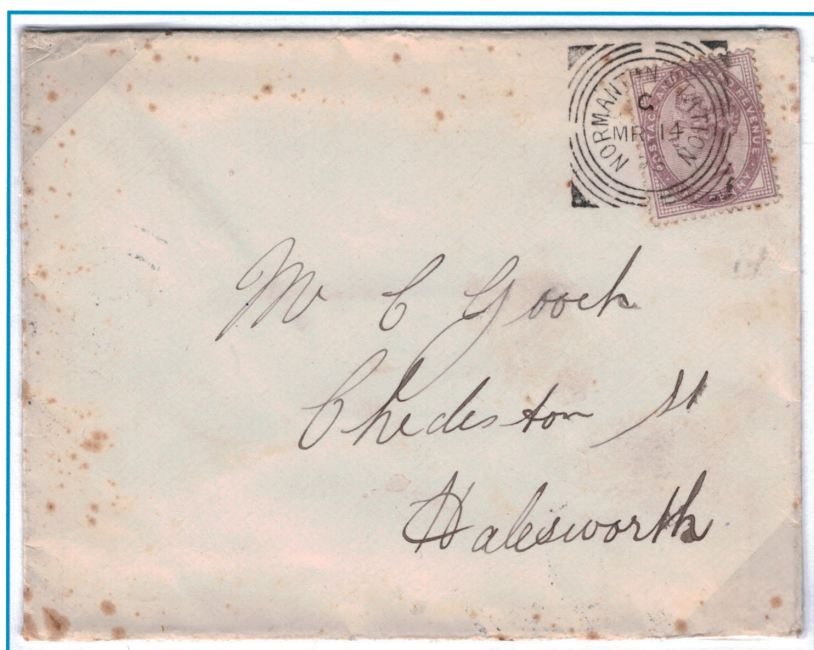 NORMANTON STATION
C
MR 14
POSTAGE AND INLAND REVENUE
Mr C Gooch
Chediston St
Halesworth